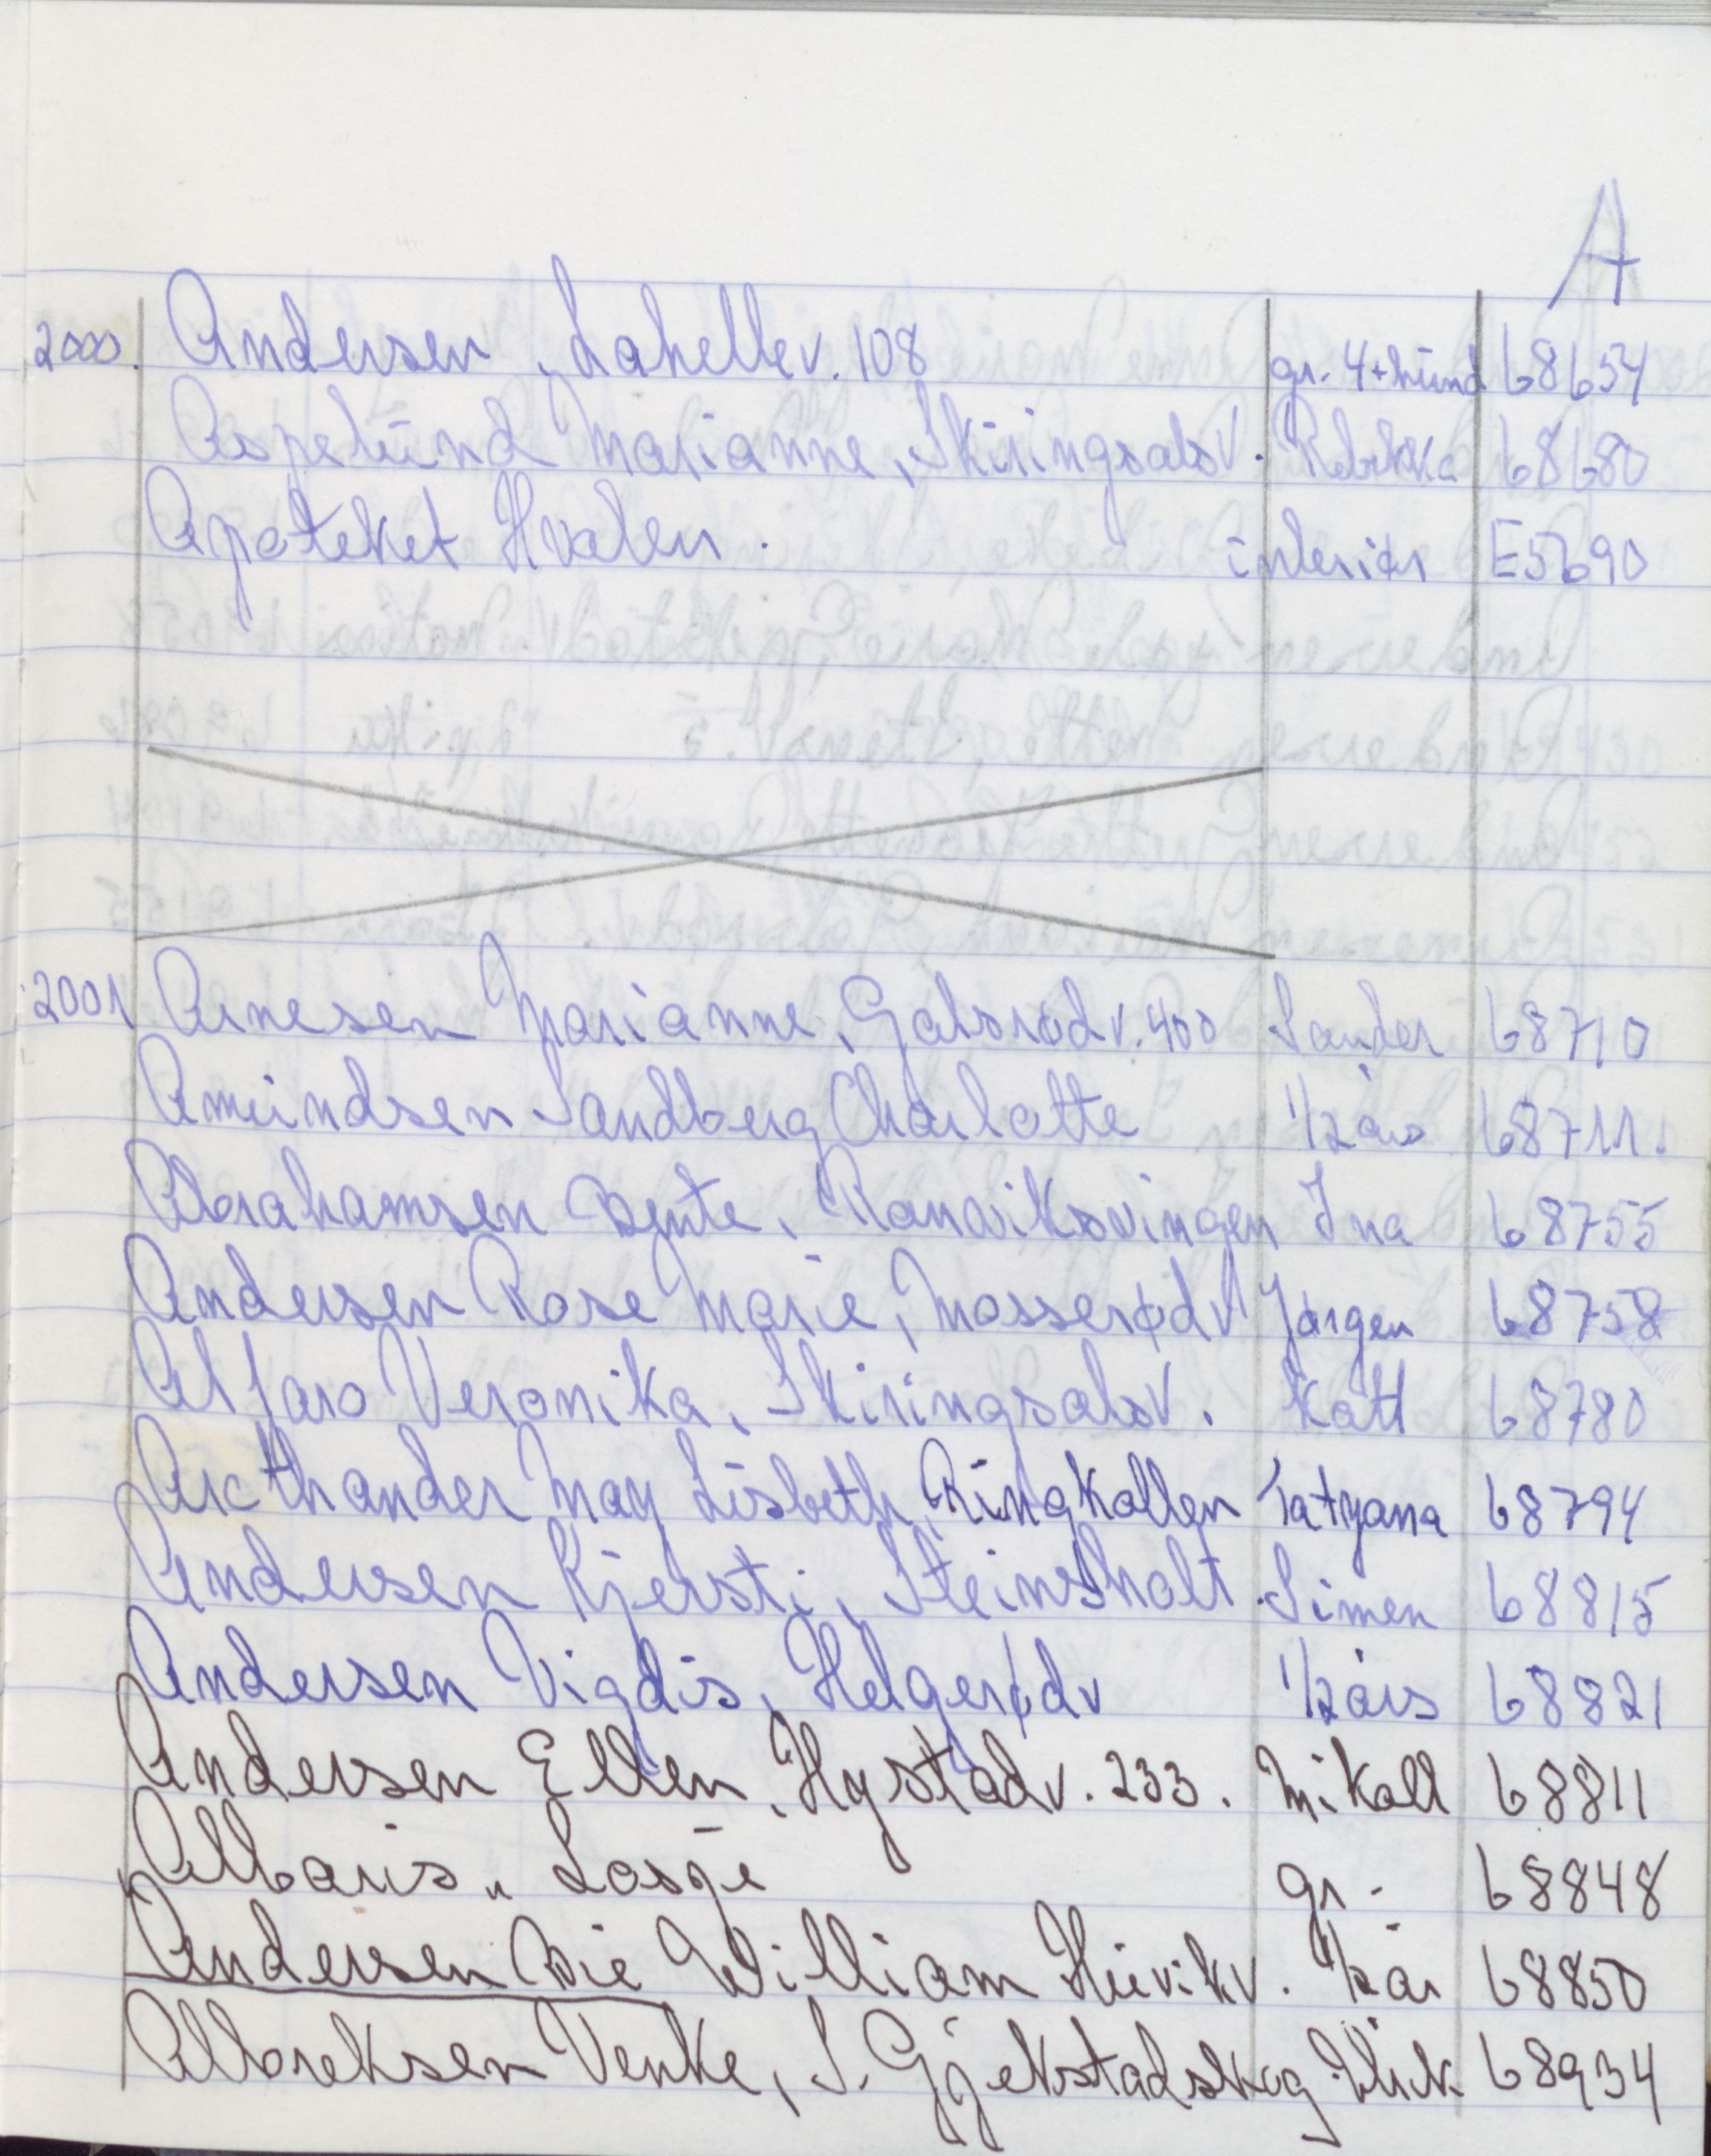 A
2000. Andersen, Lahellev. 108 gr. 4+hund 68654
Aspelund Marianne, Skiringsalsv. Rebekka 68680
Apoteket Hvalen. interiør E5690
2001 Arnesen Marianne, Gokserødv. 400 Sander 68710
Amundsen Sandberg Charlotte 1/2 års 68711.
Abrahamsen Bente, Ranviksvingen Ina 68755
Andersen Rose Marie, Mosserødv Jørgen 68758
Alfaro Veronika, Skiringsalsv. Katt 68780
Arcthander May Lisbeth, Ringkollen Tatyana 68794
Andersen Kjersti, Steinsholt Simen 68815
Andersen Vigdis, Helgerødv 1/2 års 68821
Andersen Ellen, Hystadv. 233. Mikall 68811
Albaris, Losje gr. 68848
Andersen Bie William Huvikv. 1/2 år 68850
Albreksen Venke, S. Gjekstadskog 68934